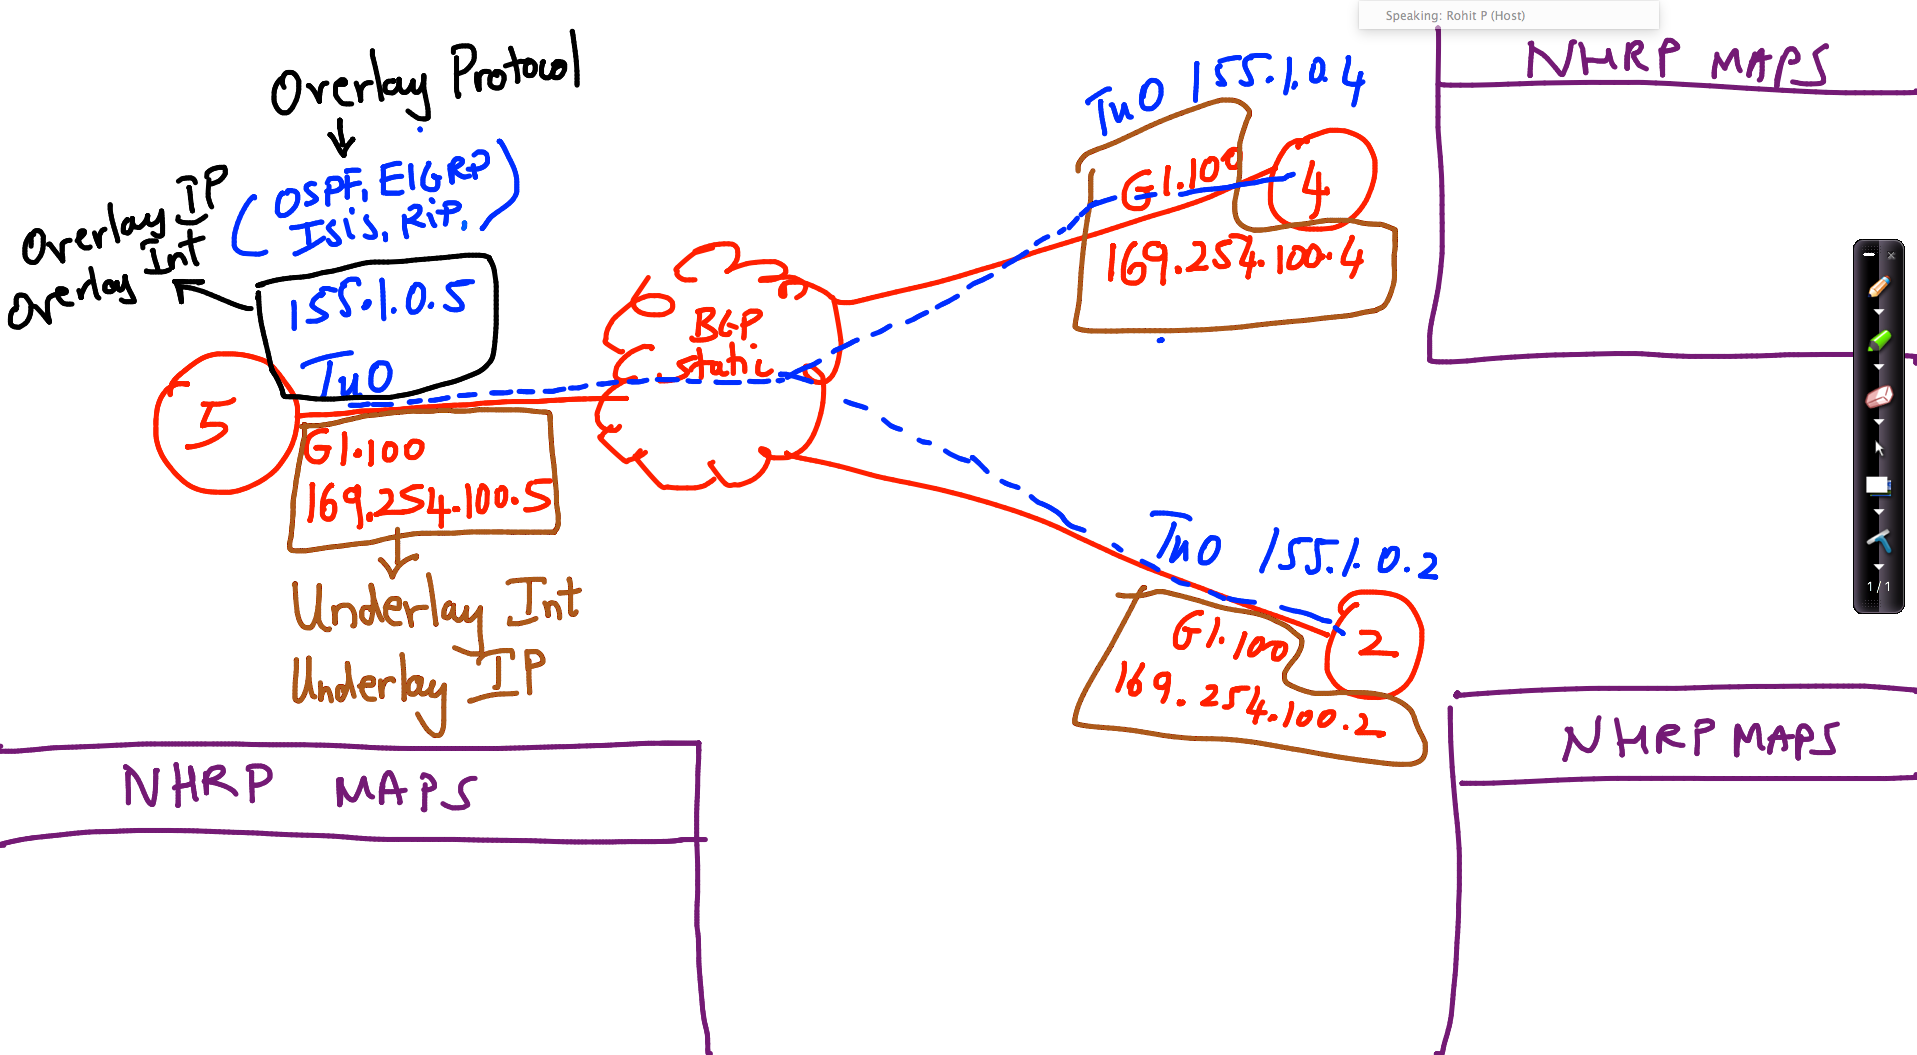 Speaking: Rohit P (Host)
Overlay Protocol
(OSPF, EIGRP
ISIS, RIP,)
Overlay IP
Overlay Int
155.1.0.5
Tu0
5
G1.100
169.254.100.5
Underlay Int
Underlay IP
BGP
static
Tu0 155.1.0.4
G1.100
4
169.254.100.4
Tu0 155.1.0.2
G1.100
2
169.254.100.2
NHRP MAPS
NHRP MAPS
NHRP MAPS
1/1